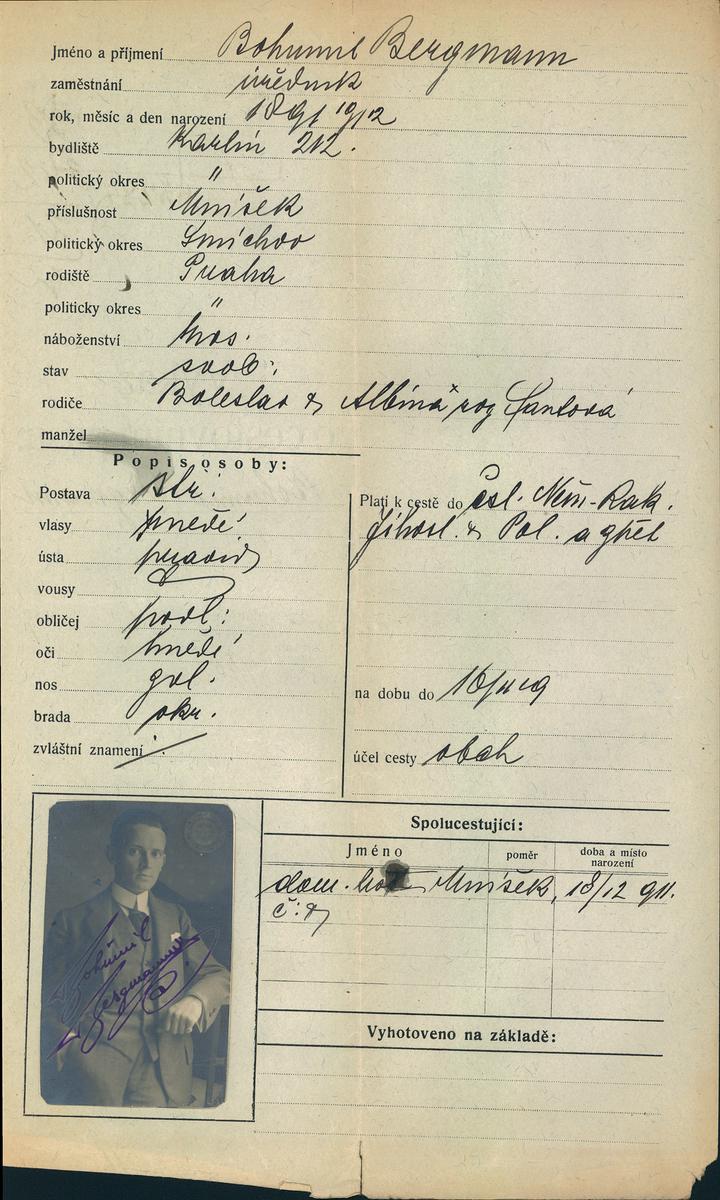 Jméno a příjmení Bohumil Bergmann
zaměstnání úředník
rok, měsíc a den narození 1891 10/12
bydliště Karlín 212.
politický okres "
příslušnost Mníšek
politický okres Smíchov
rodiště Praha
politicky okres "
náboženství mos.
stav svob.
rodiče Boleslav & Albína roz Santová
manžel
Popis osoby:
Postava stř.
vlasy hnědé
ústa pravid
vousy
obličej podl:
oči hnědé
nos
brada okr.
zvláštní znamení
Platí k cestě do čsl. Něm-Rak.
Jihosl. & Pol. a zpět
na dobu do
účel cesty obch
Spolucestující:
Jméno poměr doba a místo narození
dom. Mníšek, 18/12 911.
Bohumil
Bergmann
Vyhotoveno na základě: